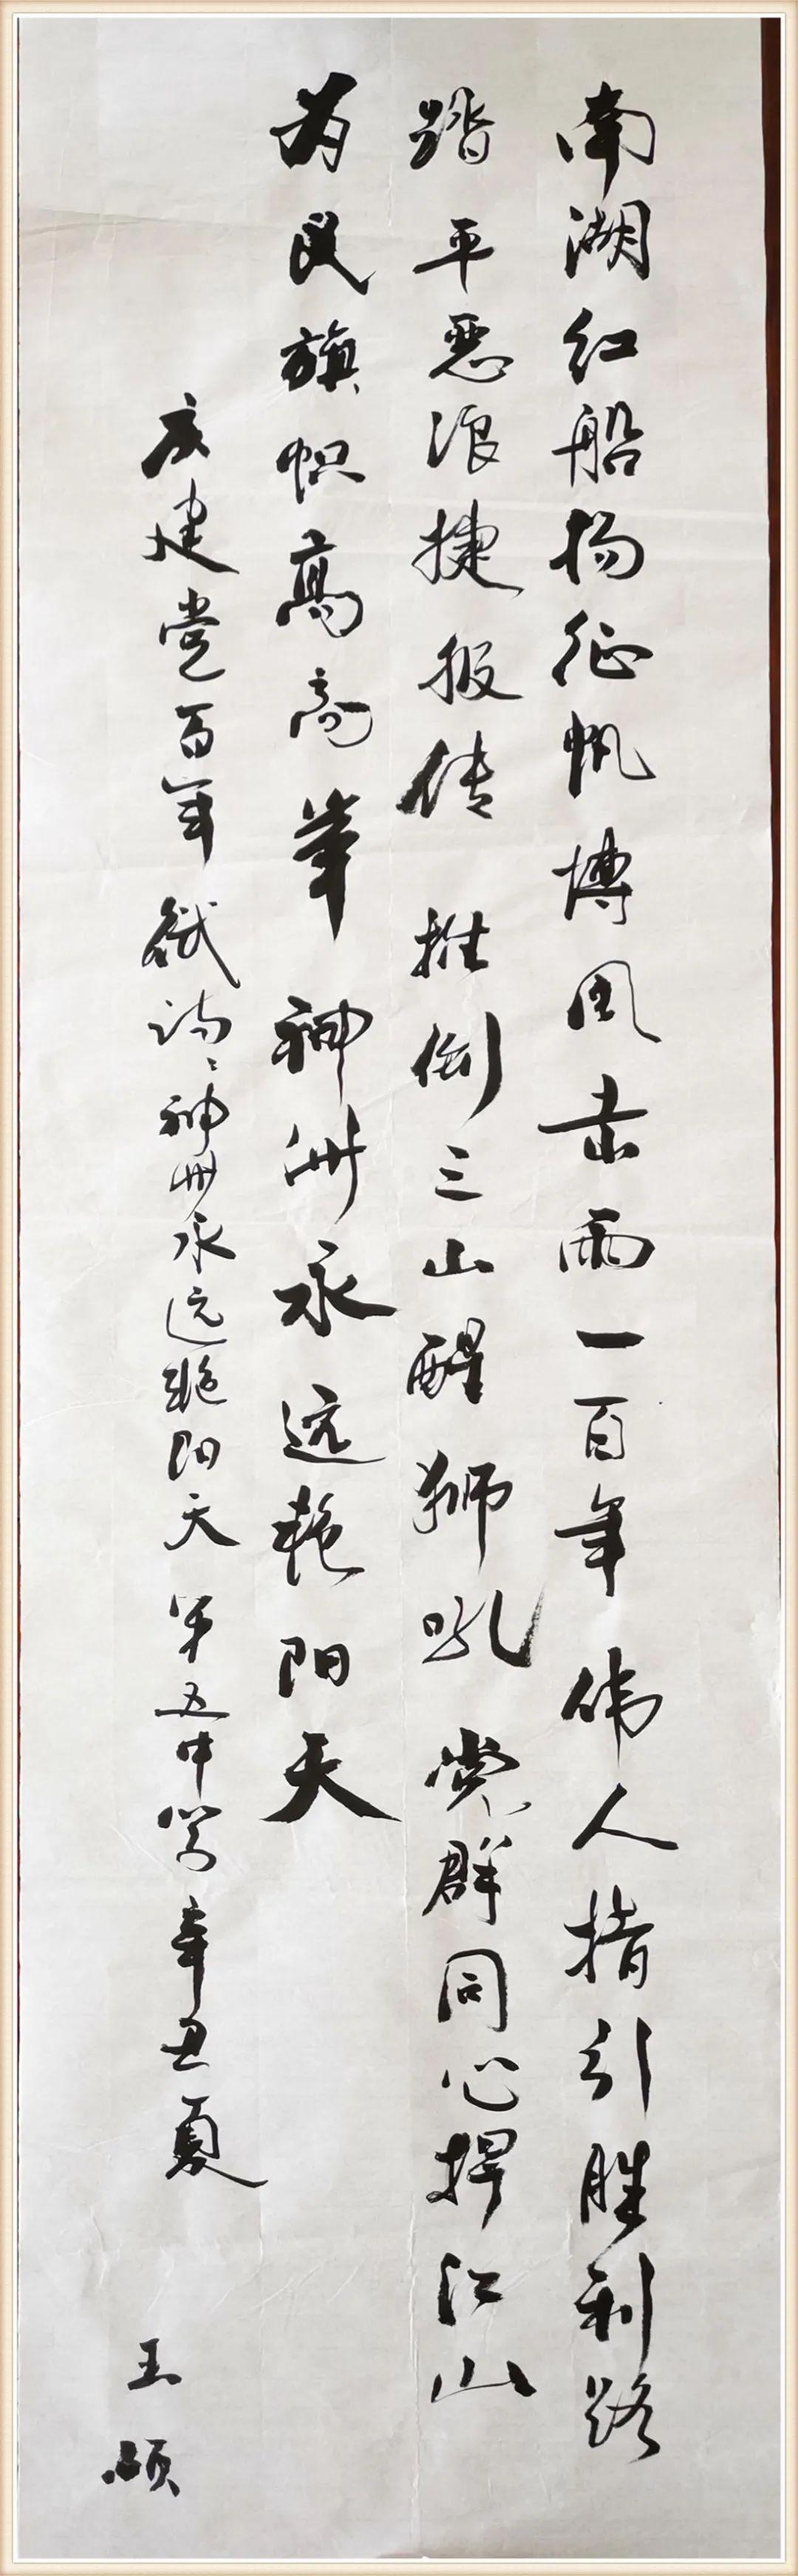 南湖红船扬征帆搏风击雨一百年伟人指引胜利路
踏平恶浪捷报传推倒三山醒狮吼党群同心捍江山
为民旗帜高高举神州永远艳阳天
庆建党百年献诗：神州永远艳阳天 第五中学 辛丑夏
王硕